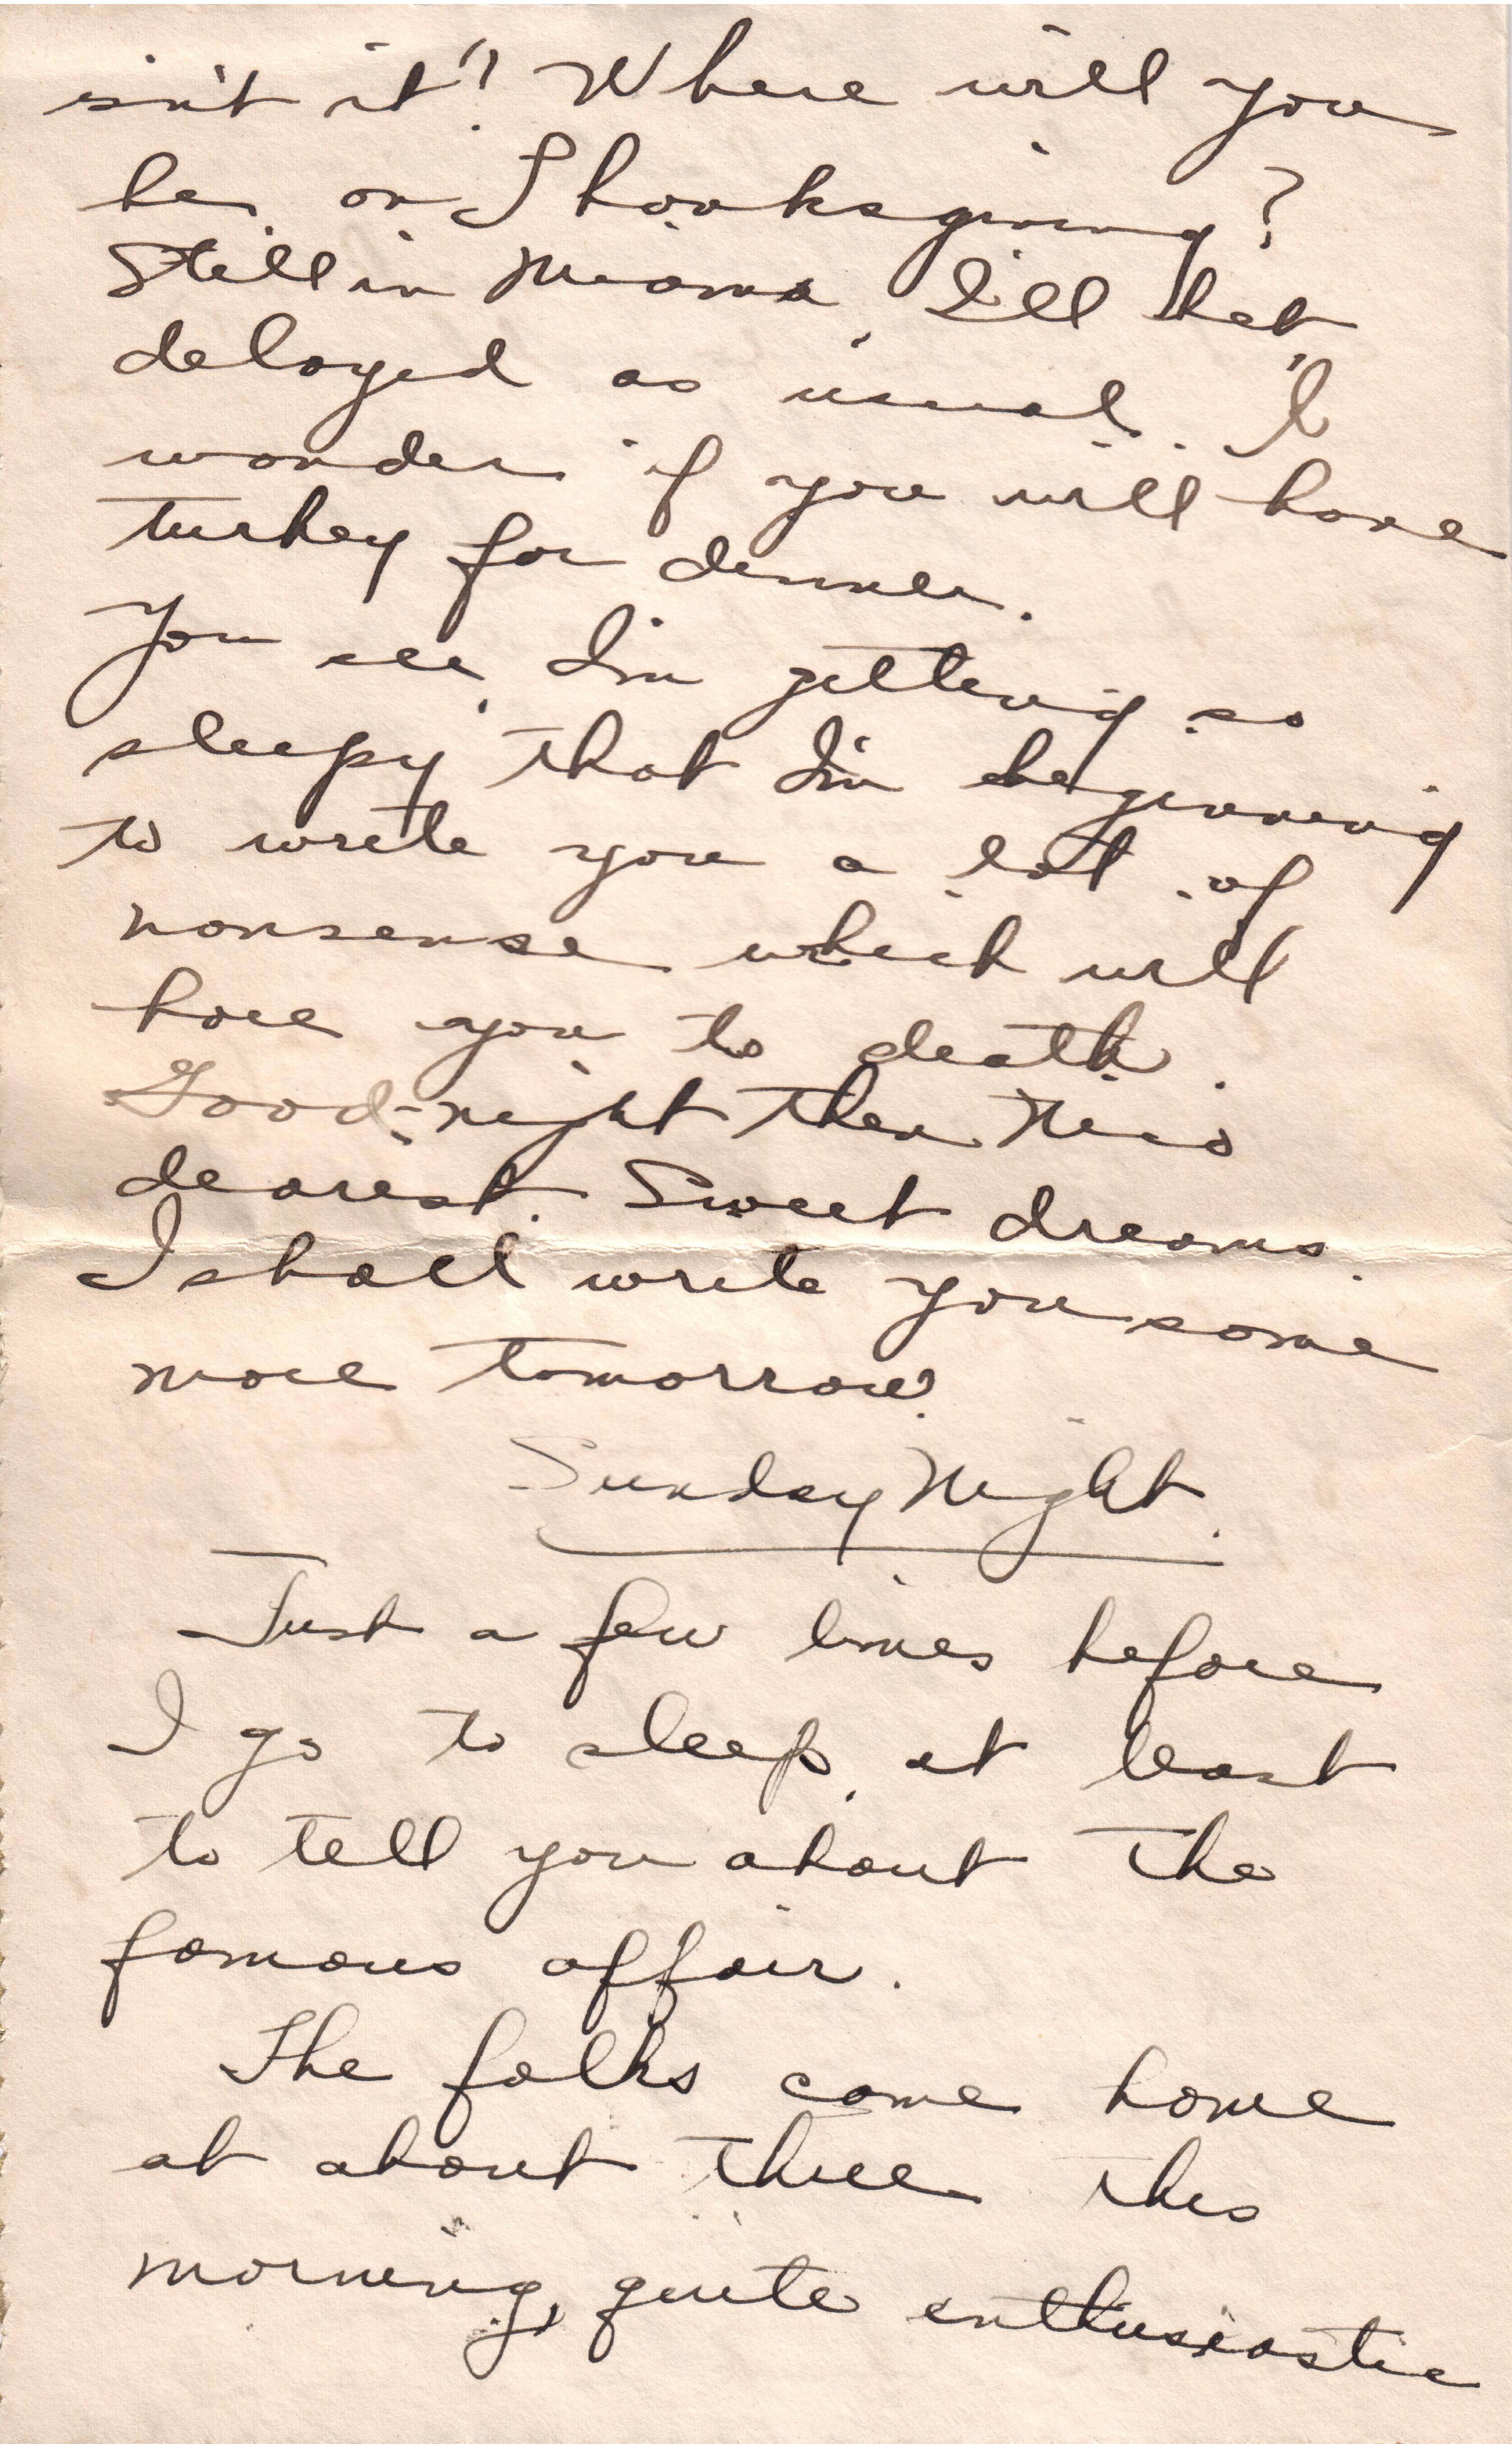 isn't it"? Where will you
be on Thanksgiving?
Still in Miami, I'll bet,
delayed as usual. I
wonder if you will have
turkey for dinner.
You see, I'm getting so
sleepy that I'm beginning
to write you a lot of
nonsense which will
bore you to death.
Good-night then
dearest. Sweet dreams.
I shall write you some
more tomorrow.
Sunday Night.
Just a few lines before
I go to sleep, at least
to tell you about the
famous affair.
The folks came home
at about three this
morning, quite enthusiastic